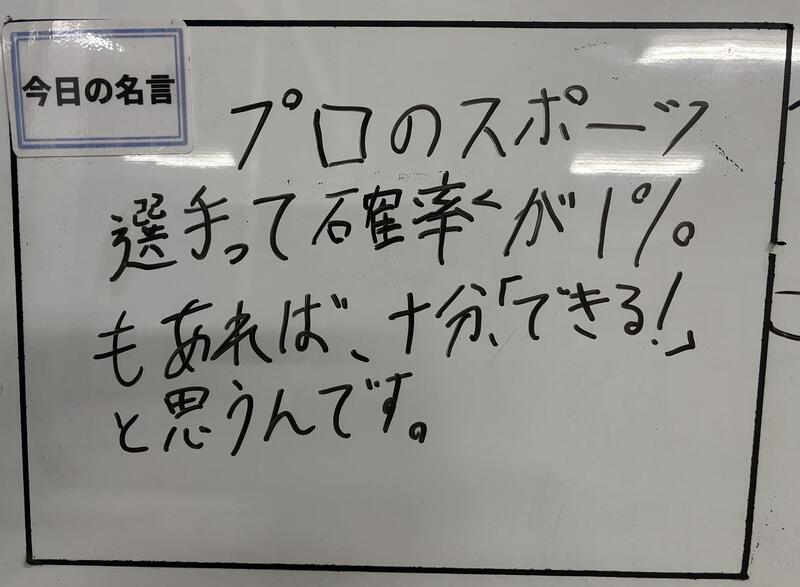 今日の名言
プロのスポーツ
選手って確率が1%
もあれば、十分、「できる!」
と思うんです。